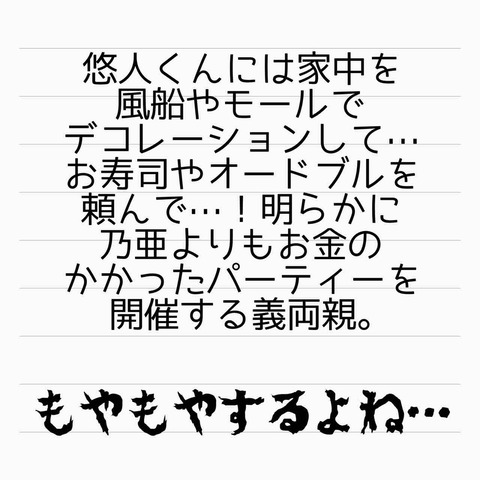 悠人くんには家中を
風船やモールで
デコレーションして…
お寿司やオードブルを
頼んで…！明らかに
乃亜よりもお金の
かかったパーティーを
開催する義両親。
もやもやするよね…